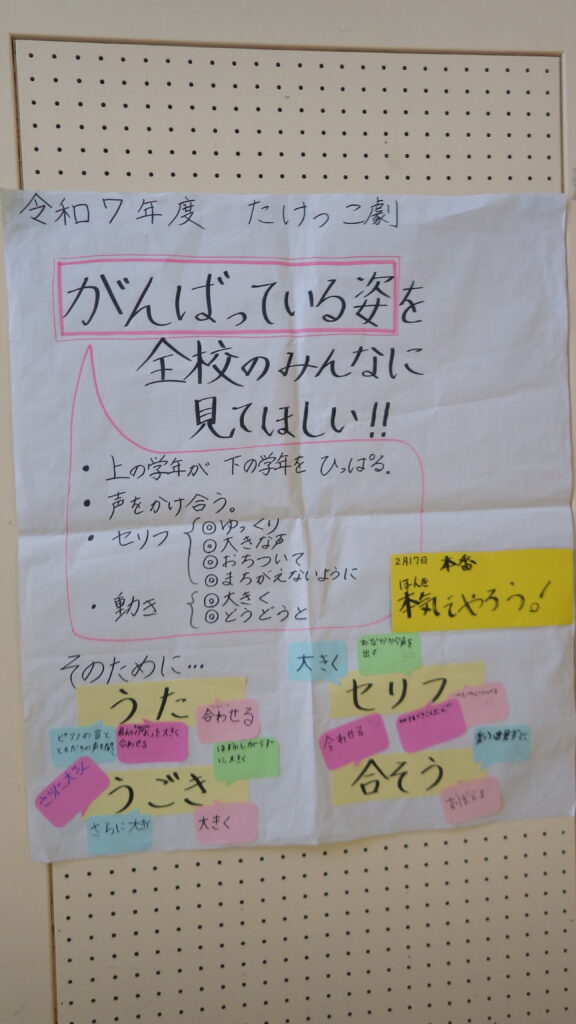 令和7年度 たけっこ劇
がんばっている姿を
全校のみんなに
見てほしい!!
・上の学年が 下の学年を ひっぱる.
・声をかけ合う。
・セリフ
◎ゆっくり
◎大きな声
◎おちついて
◎まちがえないように
・動き
◎大きく
◎どうどうと
2月17日 本番
ほんき
本気でやろう!
そのために…
うた
合わせる
ピアノの音と
ともだちの声を聞く
大きく
合わせる
はずかしがらず
に大きく
うごき
さらに大きく
大きく
大きく
おなかから声を
出す
セリフ
合わせる
合そう
おぼえる